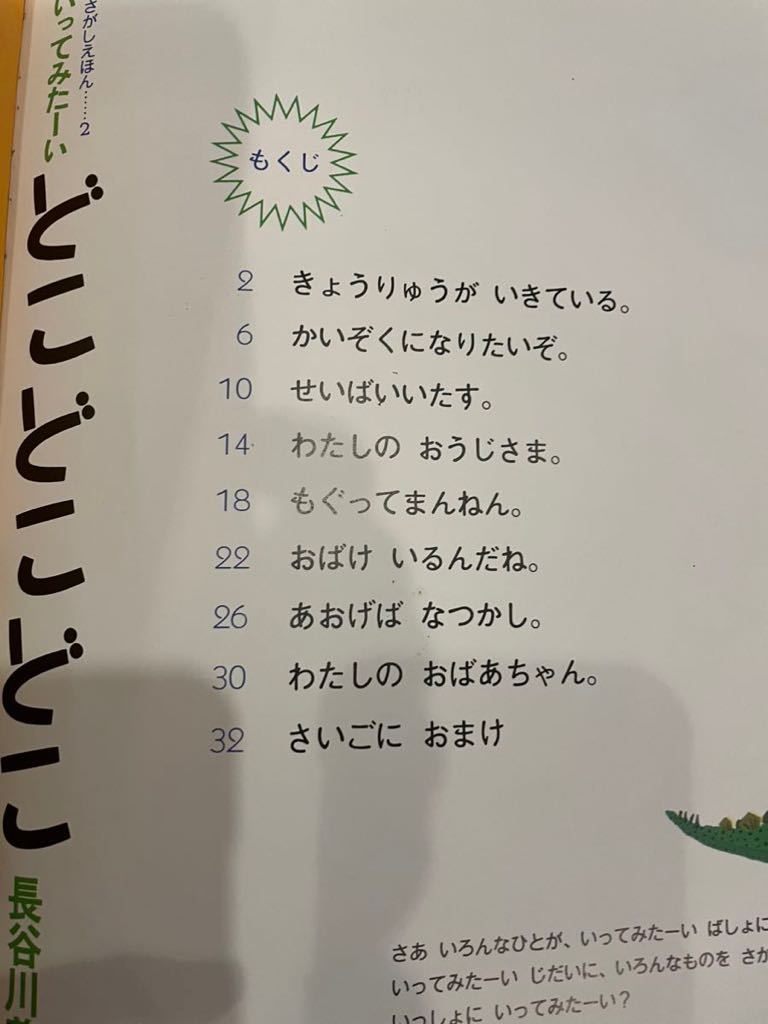 さがしえほん……2
いってみたーい
どこどこどこ
長谷川
もくじ
2 きょうりゅうが いきている。
6 かいぞくになりたいぞ。
10 せいばいいたす。
14 わたしの おうじさま。
18 もぐってまんねん。
22 おばけ いるんだね。
26 あおげば なつかし。
30 わたしの おばあちゃん。
32 さいごに おまけ
さあ いろんなひとが、いってみたーい ばしょに
いってみたーい じだいに、いろんなものを さが
いっしょに いってみたーい?